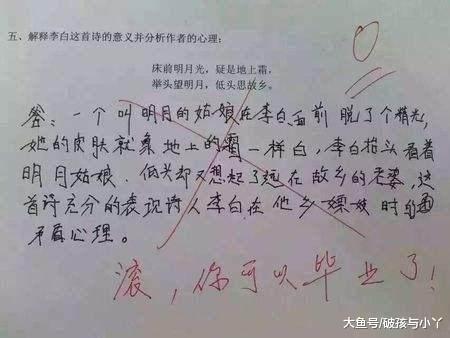 0
五、解释李白这首诗的意义并分析作者的心理:
床前明月光,疑是地上霜,
举头望明月,低头思故乡。
答:一个叫明月的姑娘在李白面前脱了个精光,
她的皮肤就象地上的霜一样白,李白抬头看着
明月姑娘.低头却又想起了远在故乡的老婆,这
首诗充分的表现诗人李白在他乡嫖妓时的
矛盾心理。
滚,你可以毕业了!
大鱼号/破孩与小丫